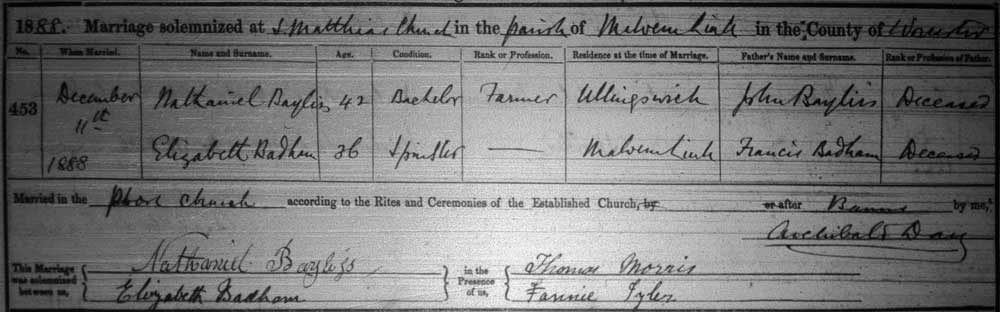 1888. Marriage solemnized at S. Matthias Church in the parish of Malvern Link in the County of Worcester
No. When Married. Name and Surname. Age. Condition. Rank or Profession. Residence at the time of Marriage. Father's Name and Surname. Rank or Profession of Father.
453 December 11th 1888 Nathaniel Bayliss 42 Bachelor Farmer Ullingswick John Bayliss Deceased
Elizabeth Badham 36 Spinster — Malvern Link Francis Badham Deceased
Married in the above church according to the Rites and Ceremonies of the Established Church, by or after Banns by me,
Archibald Day
This Marriage was solemnized between us, Nathaniel Bayliss in the Presence of us, Thomas Morris
Elizabeth Badham Fannie Tyler